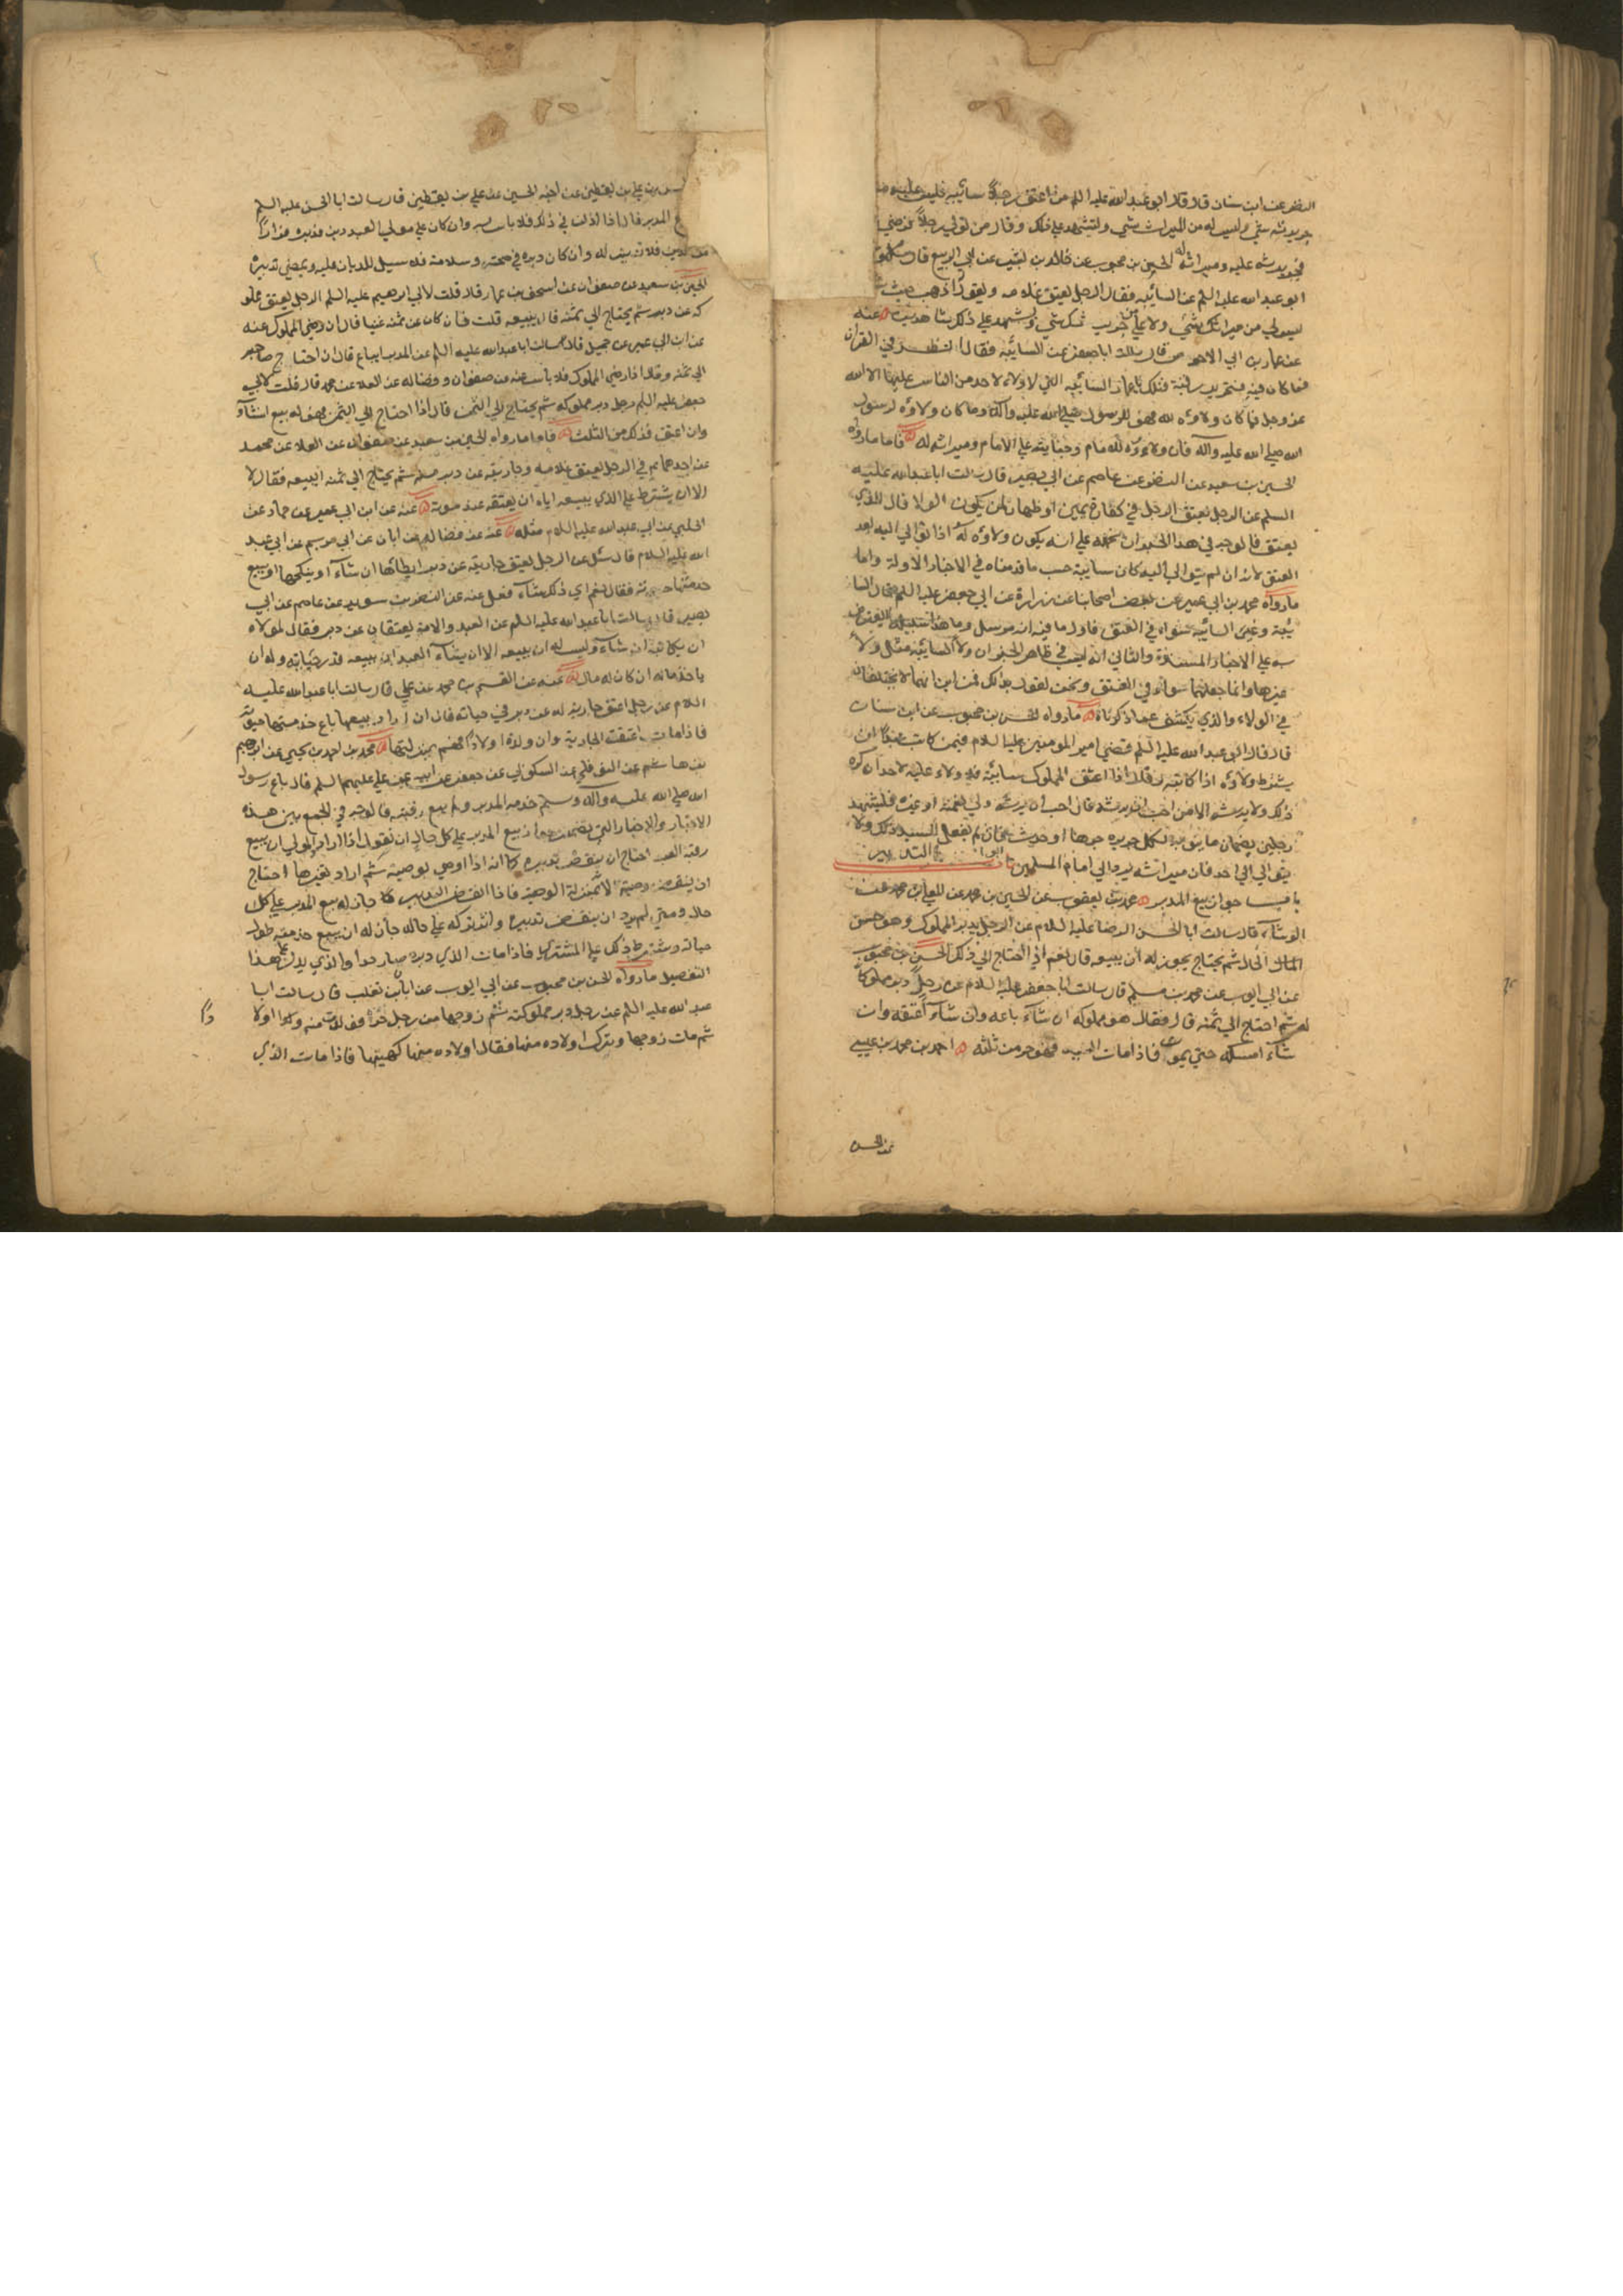 النضر عن ابن سنان قال قال ابو عبد الله عليه السلم من اعتق رجلا سائبة فليس عليه من
جريرته شيء وليس له من الميراث شي وليشهد علي ذلك وقال من تولي رجلا فرضي
فجريرته عليه وميراثه له الحسن بن محبوب عن خالد بن عن ابي الربيع قال سئل
ابو عبد الله عليه السلم عن السائبة فقال الرجل يعتق غلامه ويقول اذهب حيث شئت
ليس لي من ميراثك شيء ولا علي من جريرتك شي ويشهد علي ذلك شاهدين عنه
عن عمار بن ابي الاحوص قال سالت ابا جعفر عن السائبة فقال انظر في القران
فما كان فيه فتحرير رقبة فتلك يا عمار السائبة التي لا ولاء لاحد من الناس عليها الا الله
عز وجل فما كان ولاؤه لله فهو للرسول صلي الله عليه وآله وما كان ولاؤه لرسول
الله صلي الله عليه وآله فان ولاءه للامام وجنايته علي الامام وميراثه له فاما ما رواه
الحسين بن سعيد عن النضر عن عاصم عن ابي بصير قال سالت ابا عبد الله عليه
السلم عن الرجل يعتق الرجل في كفارة يمين او ظهار لمن يكون الولا قال للذي
يعتق فالوجه في هذا الخبر ان نحمله علي انه يكون ولاؤه له اذا توالي اليه بعد
العتق لانه ان لم يتوالي اليه كان سايبة حسب ما قدمناه في الاخبار الاولة واما
ما رواه محمد بن ابي عمير عن بعض اصحابنا عن زرارة عن ابي جعفر عليه السلم قال السا
يبة وغير السائبة سواء في العتق فاول ما فيه انه مرسل وما هذا سبيله لا يعترض
به علي الاخبار المسندة والثاني انه ليس في ظاهر الخبر ان ولاء السائبة مثل ولاء
غيرها وانما جعلهما سواء في العتق ونحن نقول بذلك فمن اين انهما لا يختلفان
في الولاء والذي يكشف عما ذكرناه ما رواه الحسن بن محبوب عن ابن سنان
قال قال ابو عبد الله عليه السلم قضي امير المومنين عليه السلام فيمن كاتب عبدا ان
يشترط ولاؤه اذا كاتبه وقال اذا اعتق المملوك سائبة فلا ولاء عليه لاحد ان كره
ذلك ولا يرثه الا من احب ان يرثه فان احب ان يرثه ولي نعمته او غيره فليشهد
رجلين بضمان ما ينوبه لكل جريرة جرها او حدث فان لم يفعل السيد ذلك ولا
يتوالي الي احد فان ميراثه يرد الي امام المسلمين ابواب التدبير
باب جواز بيع المدبر محمد بن يعقوب عن الحسين بن محمد عن المعلي بن محمد عن
الوشاء قال سالت ابا الحسن الرضا عليه السلام عن الرجل يدبر المملوك وهو حسن
الحال ثم يحتاج يجوز له ان يبيعه قال نعم اذا احتاج الي ذلك الحسن بن محبوب
عن ابي ايوب عن محمد بن مسلم قال سالت ابا جعفر عليه السلام عن رجل دبر مملوكا
له ثم احتاج الي ثمنه قال فقال هو مملوكه ان شاء باعه وان شاء اعتقه وان
شاء امسكه حتي يموت فاذا مات السيد فهو حر من ثلثه احمد بن محمد بن عيسي
عن الحسن
بن علي بن يقطين عن اخيه الحسين عن علي بن يقطين قال سالت ابا الحسن عليه السلم
المدبر قال اذا اذن في ذلك فلا باس به وان كان علي مولي العبد دين فدبره فرارا
من الدين فلا تدبير له وان كان دبره في صحة وسلامة فلا سبيل للديان عليه ويمضي تدبيره
الحسين بن سعيد عن صفوان عن اسحق بن عمار قال قلت لابي ابرهيم عليه السلم الرجل يعتق مملو
كه عن دبر ثم يحتاج الي ثمنه قال يبيعه قلت فان كان عن ثمنه غنيا قال ان رضي المملوك عنه
عن ابن ابي عمير عن جميل قال سالت ابا عبد الله عليه السلم عن المدبر ايباع قال ان احتاج صاحبه
الي ثمنه وقال اذا رضي المملوك فلا باس عنه عن صفوان وفضالة عن العلا عن محمد قال قلت لابي
جعفر عليه السلم رجل دبر مملوكه ثم يحتاج الي الثمن قال اذا احتاج الي الثمن فهو له يبيع ان شاء
وان اعتق فذلك من الثلث فاما ما رواه الحسين بن سعيد عن صفوان عن العلا عن محمد
عن احدهما في الرجل يعتق غلامه وجاريته عن دبر منه ثم يحتاج الي ثمنه ايبيعه فقال لا
الا ان يشترط علي الذي يبيعه اياه ان يعتقه عند موته عنه عن ابن ابي عمير عن حماد عن
الحلبي عن ابي عبد الله عليه السلام مثله عنه عن فضالة عن ابان عن ابي مريم عن ابي عبد
الله عليه السلام قال سئل عن الرجل يعتق جاريته عن دبر ايطاها ان شاء او ينكحها او يبيع
خدمتها حيوته فقال نعم اي ذلك شاء فعل عنه عن النضر بن سويد عن عاصم عن ابي
بصير قال سالت ابا عبد الله عليه السلم عن العبد والامة يعتقان عن دبر فقال لمولاه
ان يكاتبه ان شاء وليس له ان يبيعه الا ان يشاء العبد ان يبيعه قدر حياته وله ان
ياخذ ماله ان كان له مال عنه عن القسم بن محمد عن علي قال سالت ابا عبد الله عليه
السلام عن رجل اعتق جارية له عن دبر في حياته قال ان اراد بيعها باع خدمتها حيوته
فاذا مات اعتقت الجارية وان ولدت اولادا فهم بمنزلتها محمد بن احمد بن يحيي عن ابرهيم
بن هاشم عن النوفلي عن السكوني عن جعفر عن ابيه عن علي عليهم السلم قال باع رسول
الله صلي الله عليه وآله وسلم خدمة المدبر ولم يبع رقبته فالوجه في الجمع بين هذه
الاخبار والاخبار التي تضمنت جواز بيع المدبر علي كل حال ان نقول اذا اراد المولي ان يبيع
رقبة العبد احتاج ان ينقض تدبيره كما انه اذا اوصي بوصية ثم اراد تغيرها احتاج
ان ينقض وصيته لانه بمنزلة الوصية فاذا انقض التدبير جاز له بيع المدبر علي كل
حال ومتي لم يرد ان ينقض تدبيره واثر تركه علي حاله جاز له ان يبيع خدمته طول
حياته ويشترط ذلك علي المشتري فاذا مات الذي دبره صار حرا والذي يدل علي هذا
التفصيل ما رواه الحسن بن محبوب عن ابي ايوب عن ابان بن تغلب قال سالت ابا
عبد الله عليه السلم عن رجل دبر مملوكته ثم زوجها من رجل حر فولدت منه اولادا
ثم مات زوجها وترك اولاده منها فقال اولاده منها كهيئتها فاذا مات الذي